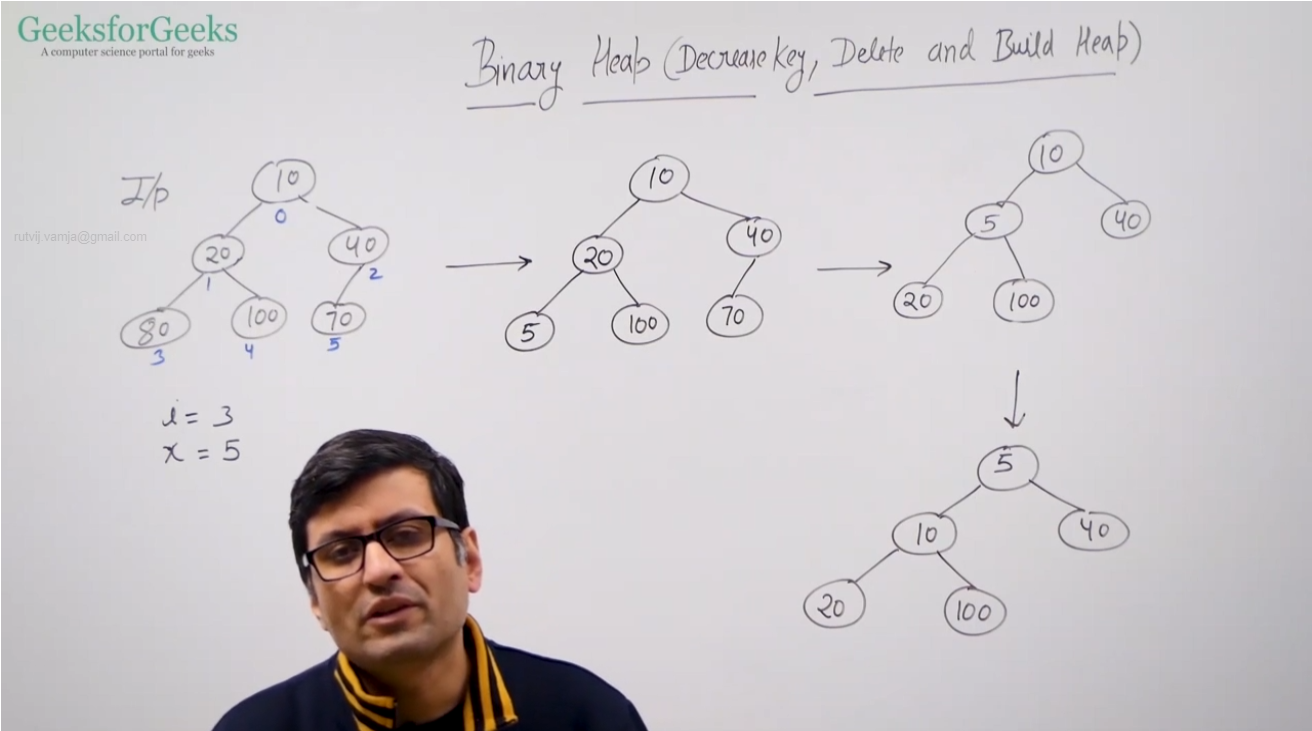 GeeksforGeeks
A computer science portal for geeks
Binary Heap (Decrease Key, Delete and Build Heap)
I/p
rutvij.vamja@gmail.com
10
0
20
40
1
2
80
100
70
3
4
5
i = 3
x = 5
10
20
40
5
100
70
10
5
40
20
100
5
10
40
20
100